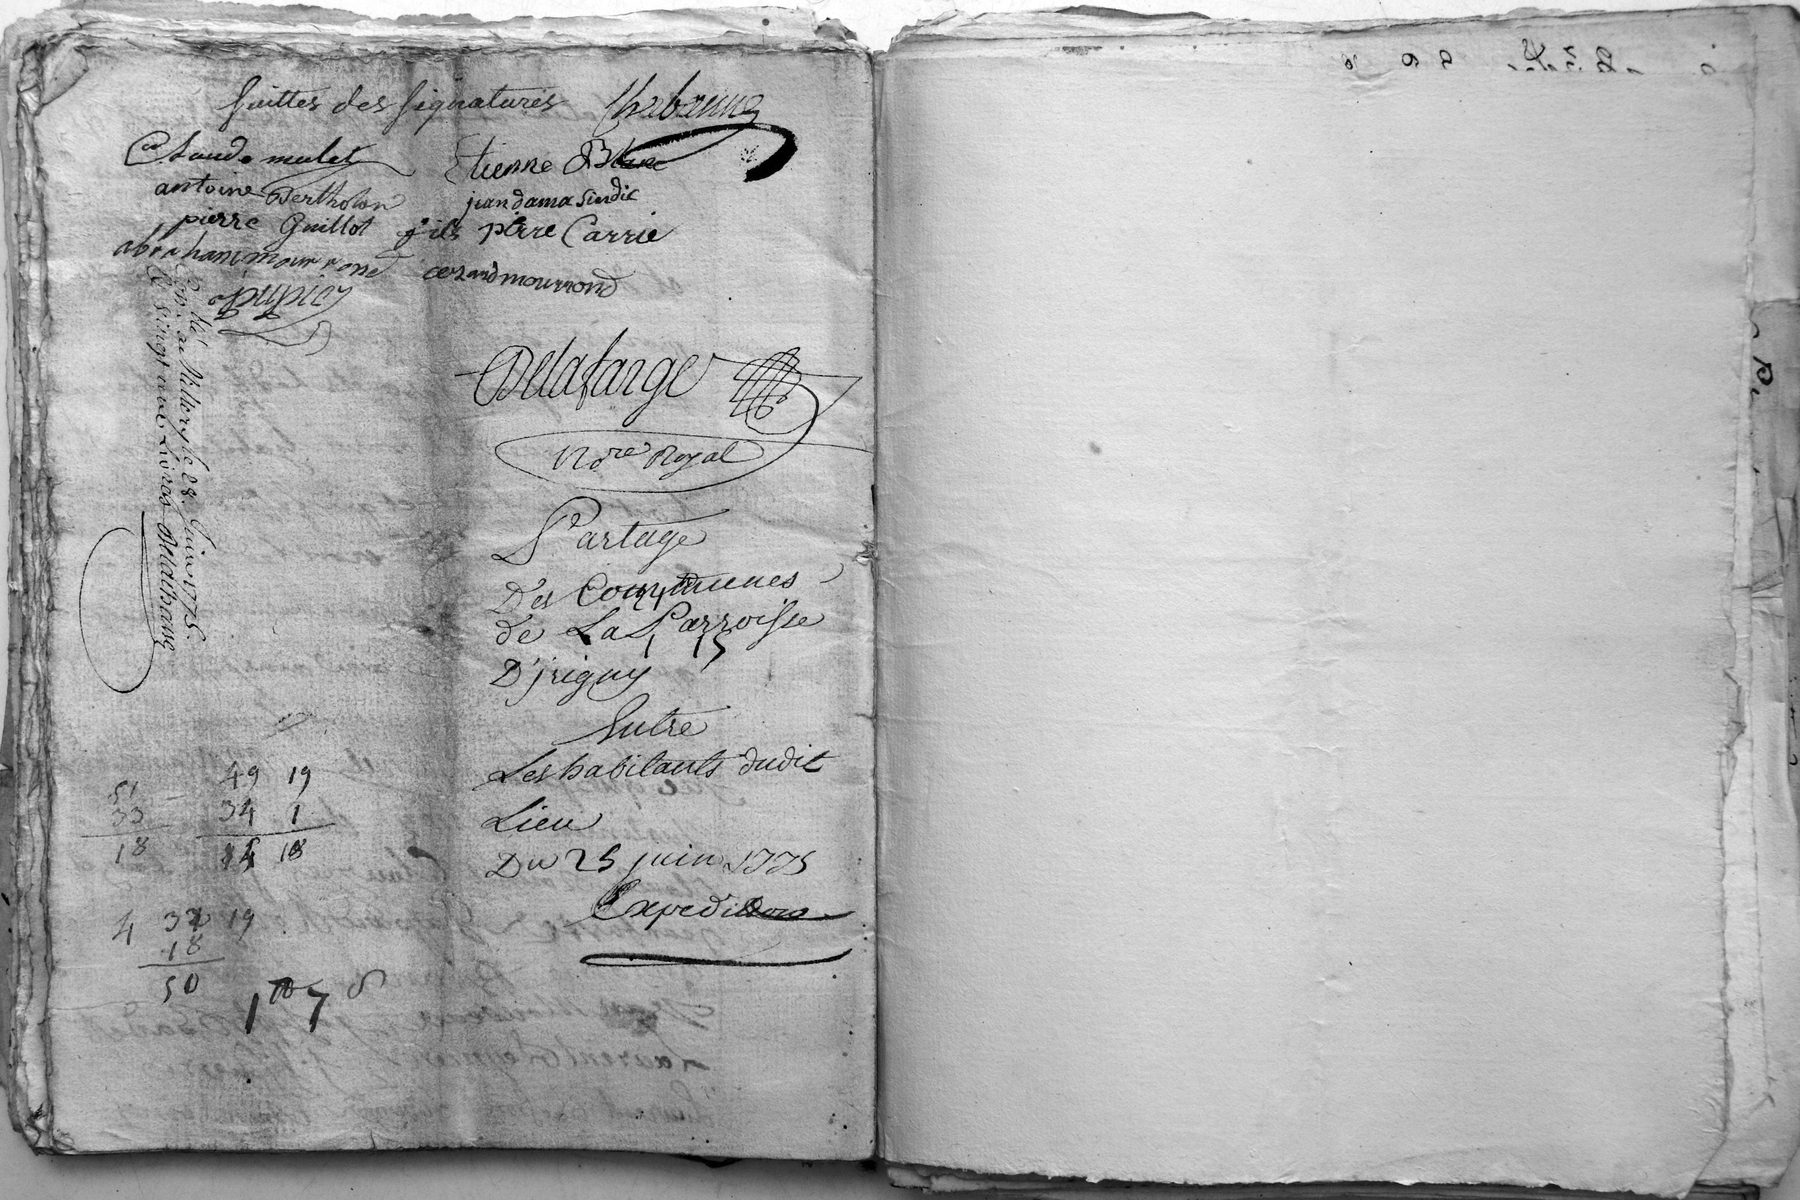 Suittes des Signatures Chabanne
Claude mulet Etienne Blanc
antoine Bertholon jean dama sindic
pierre Guillot fils pierre Carrie
abraham mourrond cezard mourrond
Delafarge
Nore Royal
Con. lé à Millery le 28. Juin 1775.
vingt neuf Livres
Partage
Des Communes
de La Parroisse
D'jrigny
Entre
Les habitants dudit
Lieu
Du 25 juin 1775
Expedition
51 49 19
33 34 1
18 15 18
4 32 19
18
50